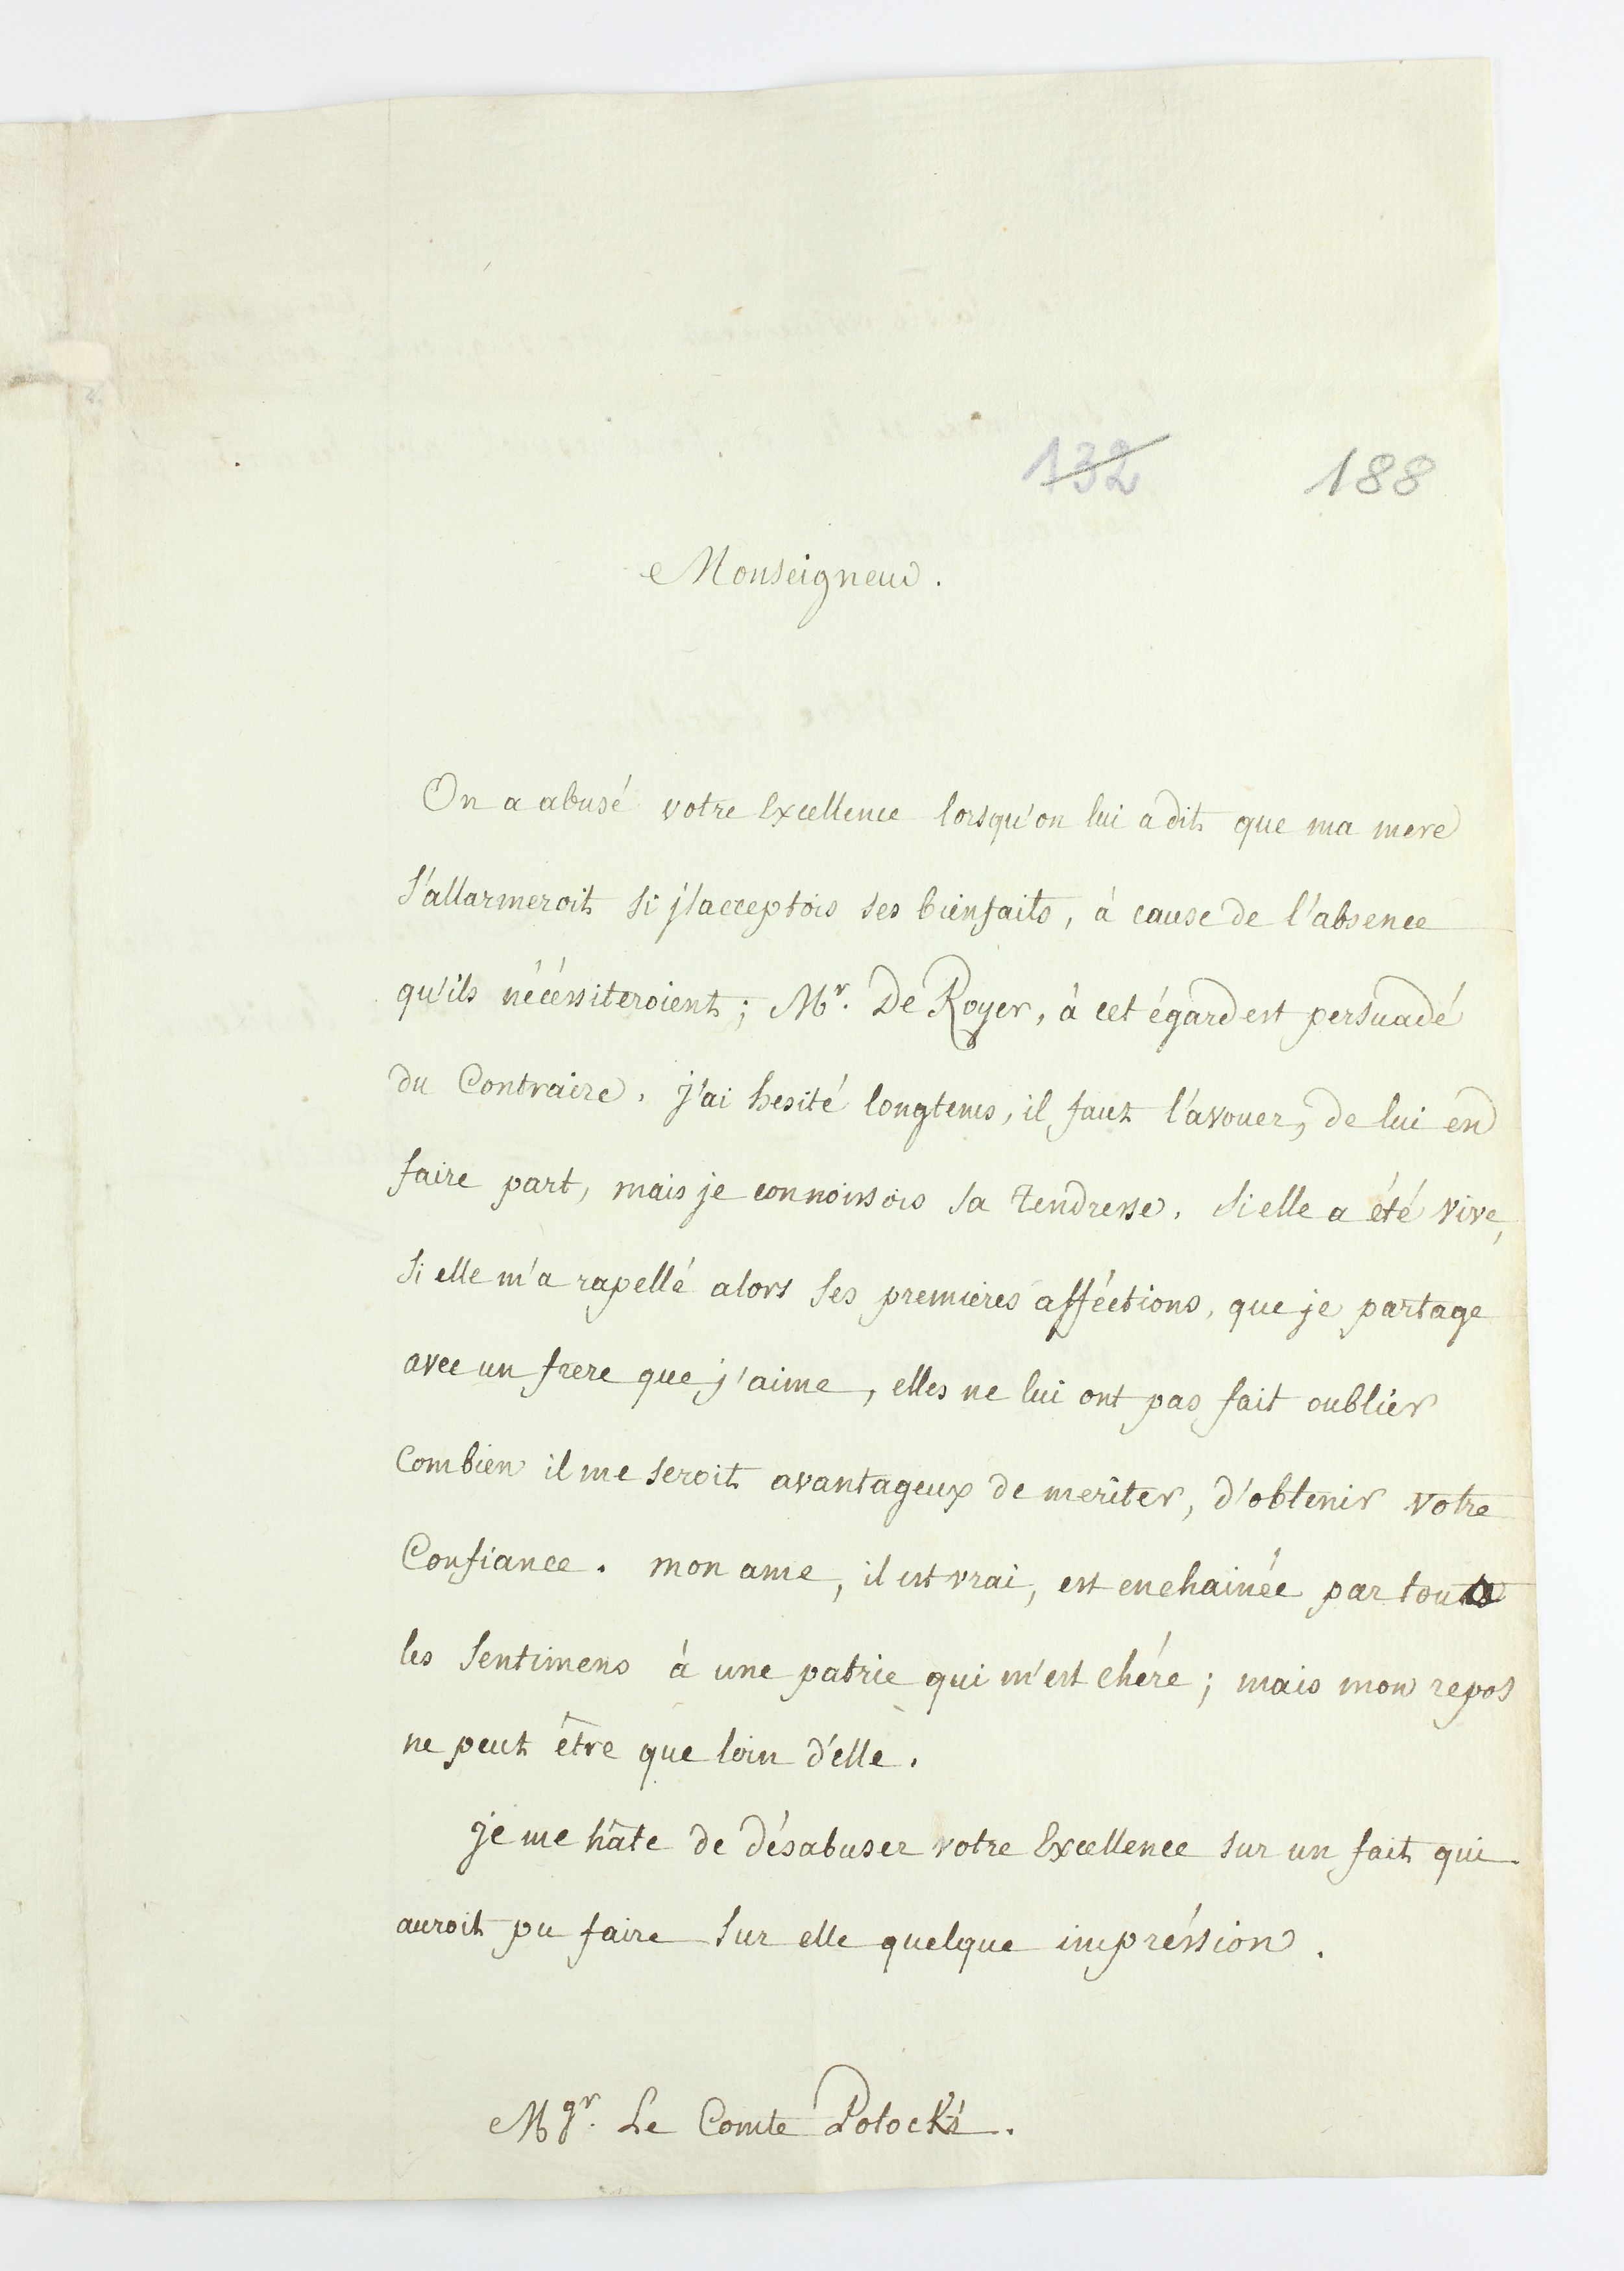 132 188
Monseigneur.
On a abusé votre Excellence lorsqu'on lui a dit que ma mere
s'allarmeroit si j'acceptois ses bienfaits, à cause de l'absence
qu'ils nécéssiteroient; Mr. De Royer, à cet égard est persuadé
du Contraire. j'ai hesité longtems, il faut l'avouer, de lui en
faire part, mais je connoissois sa tendresse. Si elle a été vive,
si elle m'a rapellé alors ses premieres afféctions, que je partage
avec un frere que j'aime, elles ne lui ont pas fait oublier
Combien il me seroit avantageux de meriter, d'obtenir votre
Confiance. mon ame, il est vrai, est enchainée par tous
les sentimens à une patrie qui m'est chére; mais mon repos
ne peut être que loin d'elle.
je me hâte de désabuser votre Excellence sur un fait qui
auroit pu faire sur elle quelque impréssion.
Mgr. Le Comte Potocki.